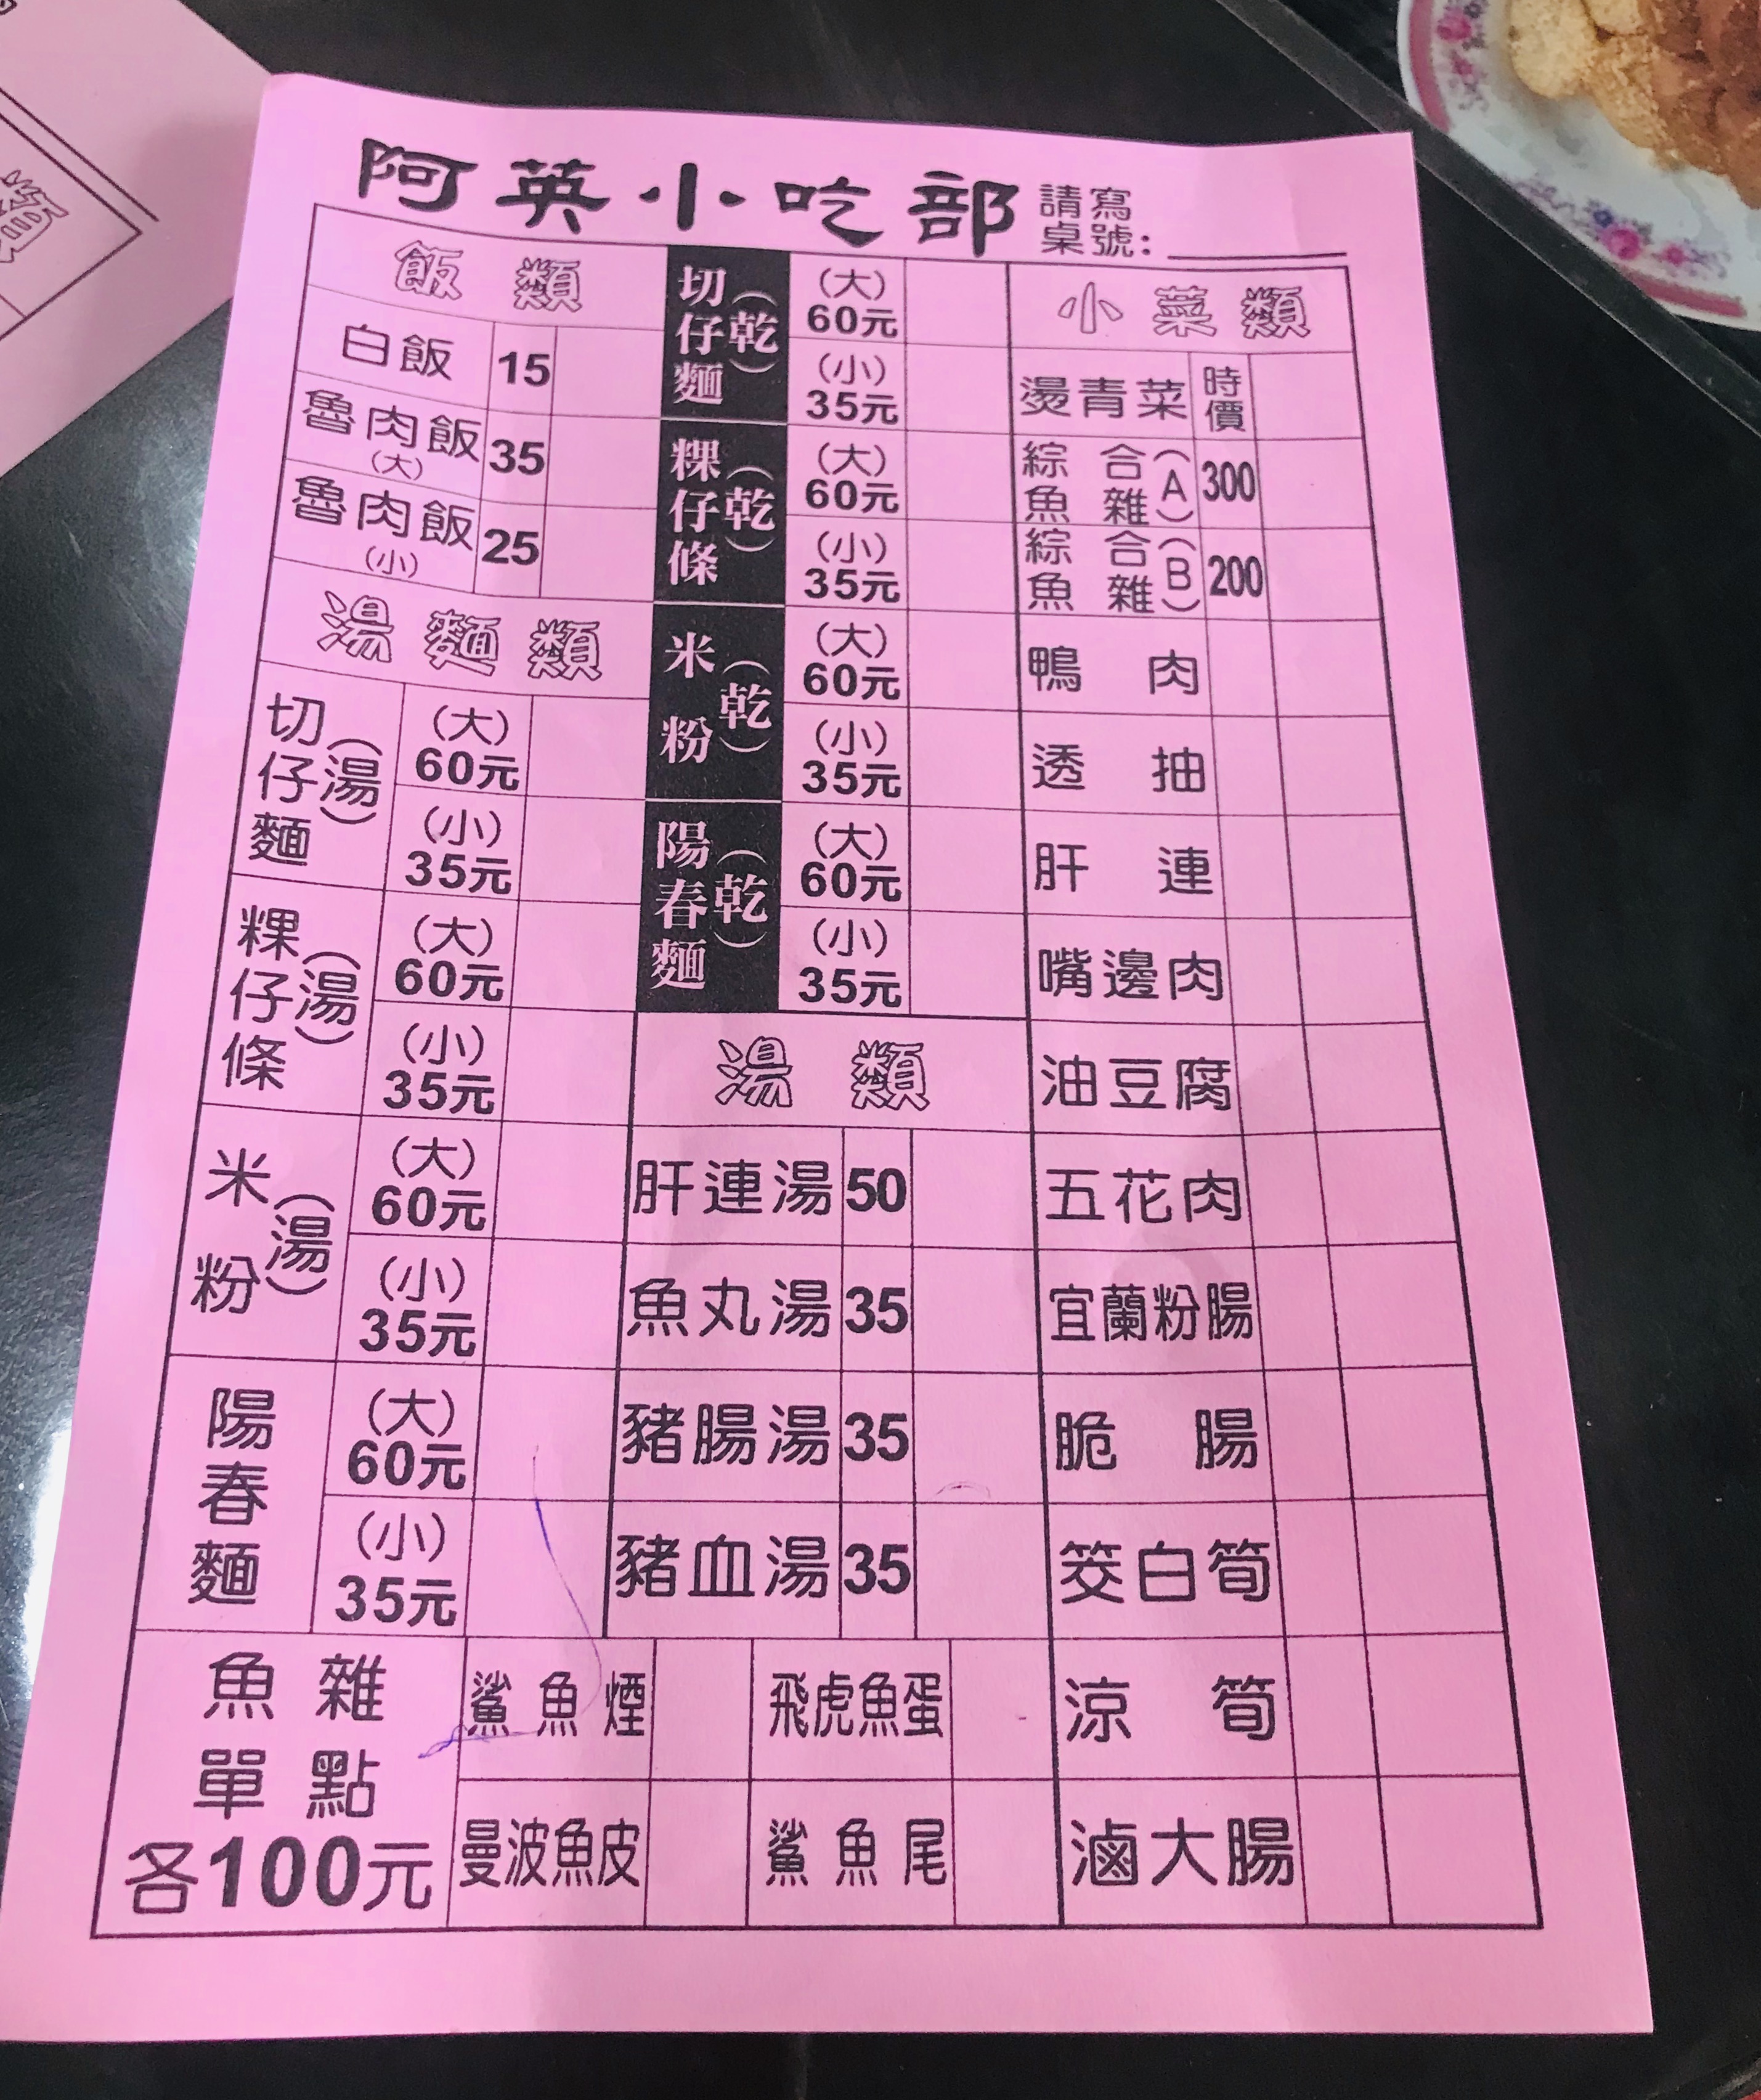 阿英小吃部 請寫桌號:
飯類
白飯 15
魯肉飯(大) 35
魯肉飯(小) 25
湯麵類
切仔麵(湯) (大)60元
(小)35元
粿仔條(湯) (大)60元
(小)35元
米粉(湯) (大)60元
(小)35元
陽春麵 (大)60元
(小)35元
切仔麵(乾) (大)60元
(小)35元
粿仔條(乾) (大)60元
(小)35元
米粉(乾) (大)60元
(小)35元
陽春麵(乾) (大)60元
(小)35元
湯類
肝連湯 50
魚丸湯 35
豬腸湯 35
豬血湯 35
小菜類
燙青菜 時價
綜合魚雜(A) 300
綜合魚雜(B) 200
鴨肉
透抽
肝連
嘴邊肉
油豆腐
五花肉
宜蘭粉腸
脆腸
筊白筍
涼筍
滷大腸
魚雜單點各100元
鯊魚煙
飛虎魚蛋
曼波魚皮
鯊魚尾